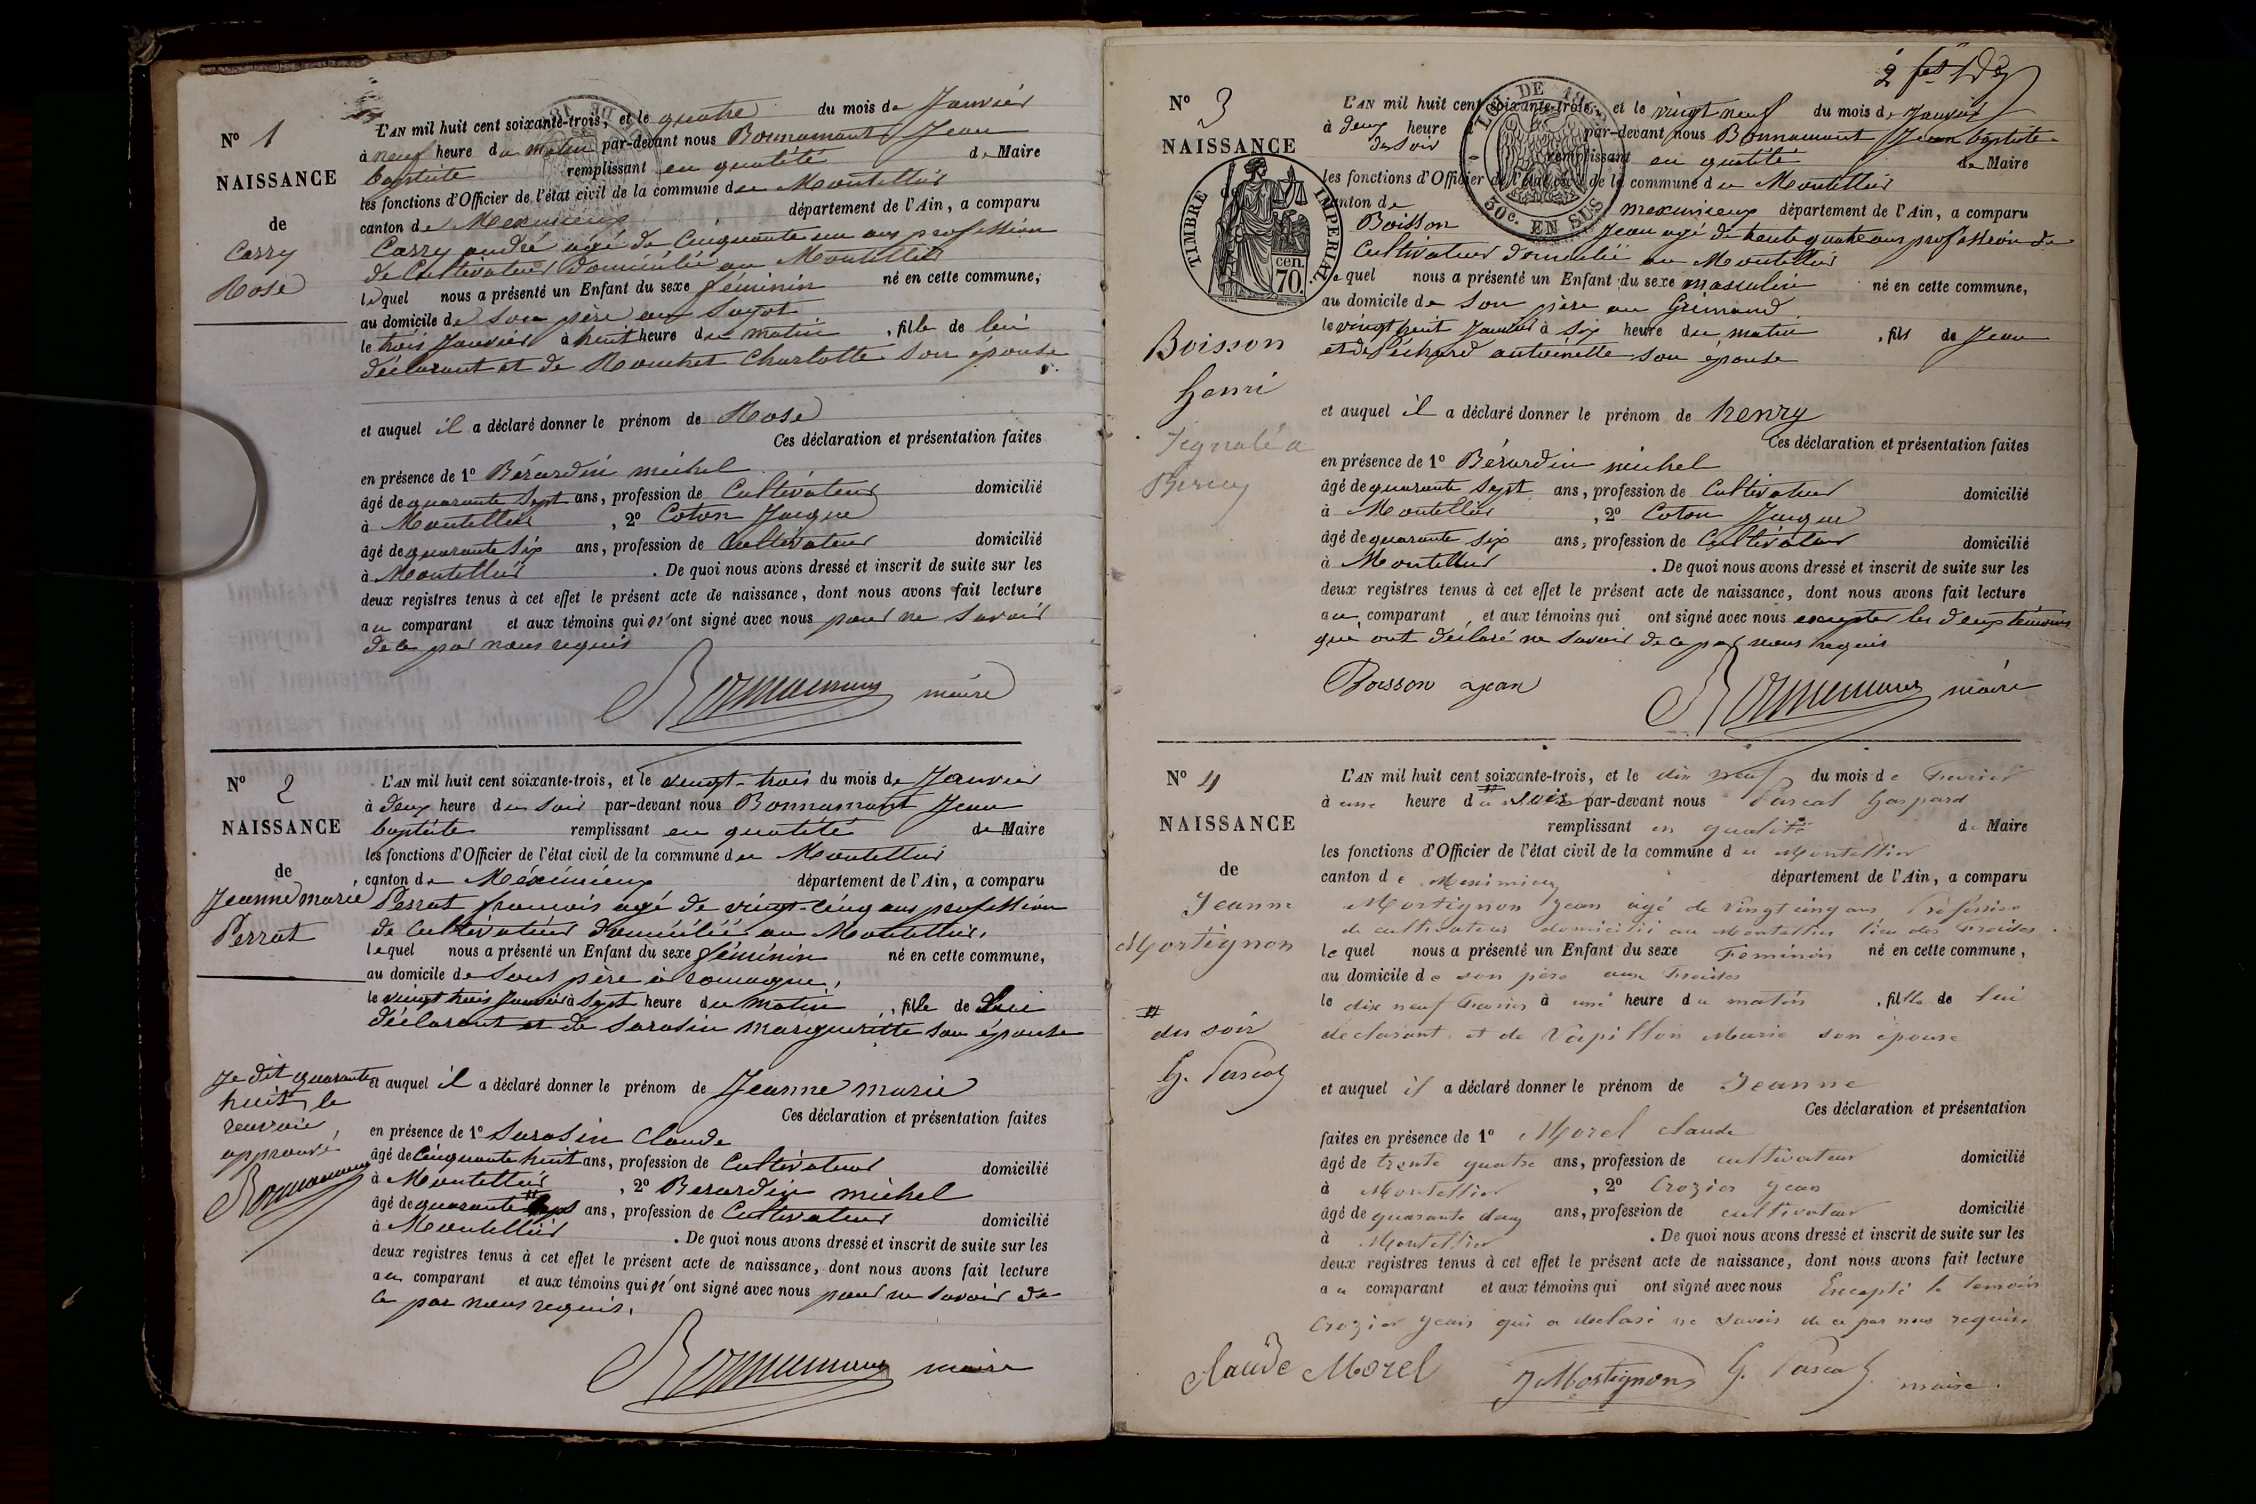 N° 1
NAISSANCE
de
Carry
Rose
L'AN mil huit cent soixante-trois, et le quatre du mois de Janvier
à neuf heure du matin par-devant nous Bonnamant Jean
baptiste remplissant en qualité de Maire
les fonctions d'Officier de l'état civil de la commune de Montellier
canton de Meximieux département de l'Ain, a comparu
Carry andré agé de Cinquante un ans profession
de Cultivateur Domicilié au Montellier
lequel nous a présenté un Enfant du sexe féminin né en cette commune,
au domicile de son père au
le trois Janvier à huit heure du matin , fille de lui
déclarant et de Charlotte son épouse
et auquel il a déclaré donner le prénom de Rose
Ces déclaration et présentation faites
en présence de 1° Bérardin michel
âgé de quarante sept ans, profession de Cultivateur domicilié
à Montellier , 2° Coton Jacque
âgé de quarante six ans, profession de Cultivateur domicilié
à Montellier . De quoi nous avons dressé et inscrit de suite sur les
deux registres tenus à cet effet le présent acte de naissance, dont nous avons fait lecture
au comparant et aux témoins qui n'ont signé avec nous pour ne savoir
de ce par nous requis
Bonnamant maire
N° 2
NAISSANCE
de
Jeanne marie
Perrat
L'AN mil huit cent soixante-trois, et le vingt-trois du mois de Janvier
à deux heure du soir par-devant nous Bonnamant Jean
baptiste remplissant en qualité de Maire
les fonctions d'Officier de l'état civil de la commune du Montellier
canton de Méximieux département de l'Ain, a comparu
Perrat francois agé de vingt-cinq ans profession
de cultivateur domicilié au Montellier,
lequel nous a présenté un Enfant du sexe féminin né en cette commune,
au domicile de sont père à romagne,
le vingt trois Janvier à sept heure du matin , fille de lui
déclarant et de Sarasin margueritte son épouse
et auquel il a déclaré donner le prénom de Jeanne marie
Ces déclaration et présentation faites
en présence de 1° Sarasin Claude
âgé de Cinquante huit ans, profession de Cultivateur domicilié
à Montellier , 2° Berardin michel
âgé de quarante ans, profession de Cultivateur domicilié
à Montellier . De quoi nous avons dressé et inscrit de suite sur les
deux registres tenus à cet effet le présent acte de naissance, dont nous avons fait lecture
au comparant et aux témoins qui n'ont signé avec nous pour ne savoir de
ce par nous requis.
Je dit quarante
huit, le
renvoie,
approuvé
Bonnamant
Bonnamant maire
N° 3
NAISSANCE
TIMBRE IMPERIAL
70 cen.
LOI DE 18
30c. EN SUS
Boisson
henri
Signalé a
L'AN mil huit cent soixante-trois, et le vingt neuf du mois de Janvier
à deux heure du soir par-devant nous Bonnamant Jean baptiste
remplissant en qualité de Maire
les fonctions d'Officier de l'état civil de la commune du Montellier
canton de meximieux département de l'Ain, a comparu
Boisson Jean agé de trente quatre ans profession de
Cultivateur domicilié au Montellier
lequel nous a présenté un Enfant du sexe masculin né en cette commune,
au domicile de son père au Grimand
le vingt huit Janvier à six heure du matin , fils de Jean
et de Péchard antoinette son épouse
et auquel il a déclaré donner le prénom de henry
Ces déclaration et présentation faites
en présence de 1° Bérardin michel
âgé de quarante sept ans, profession de Cultivateur domicilié
à Montellier , 2° Coton Jacque
âgé de quarante six ans, profession de Cultivateur domicilié
à Montellier . De quoi nous avons dressé et inscrit de suite sur les
deux registres tenus à cet effet le présent acte de naissance, dont nous avons fait lecture
au comparant et aux témoins qui ont signé avec nous excepter les deux témoins
que ont déclaré ne savoir de ce par nous requis
Boisson jean Bonnamant maire
N° 4
NAISSANCE
de
Jeanne
Mortignon
du soir
G. Pascal
L'AN mil huit cent soixante-trois, et le dix neuf du mois de Fevrier
à une heure du soir par-devant nous Pascal Gaspard
remplissant en qualité de Maire
les fonctions d'Officier de l'état civil de la commune du Montellier
canton de Meximieux département de l'Ain, a comparu
Mortignon Jean agé de vingt cinq ans Profession
de cultivateur domicilié au Montellier lieu des Froides
lequel nous a présenté un Enfant du sexe Feminin né en cette commune,
au domicile de son père aux Froides
le dix neuf Fevrier à une heure du matin , fille de lui
declarant et de Papillon Marie son épouse
et auquel il a déclaré donner le prénom de Jeanne
Ces déclaration et présentation
faites en présence de 1° Morel claude
âgé de trente quatre ans, profession de cultivateur domicilié
à Montellier , 2° Crozier Jean
âgé de quarante deux ans, profession de cultivateur domicilié
à Montellier . De quoi nous avons dressé et inscrit de suite sur les
deux registres tenus à cet effet le présent acte de naissance, dont nous avons fait lecture
au comparant et aux témoins qui ont signé avec nous Excepté le temoin
Crozier Jean qui a declaré ne savoir de ce par nous requis.
claude Morel J Mortignon G. Pascal maire.